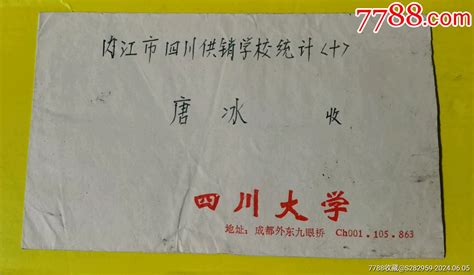 7788.com
内江市四川供销学校统计〈十〉
唐 冰 收
四川大学
地址：成都外东九眼桥 Ch001．105．863
7788收藏@S282959-2024.06.05